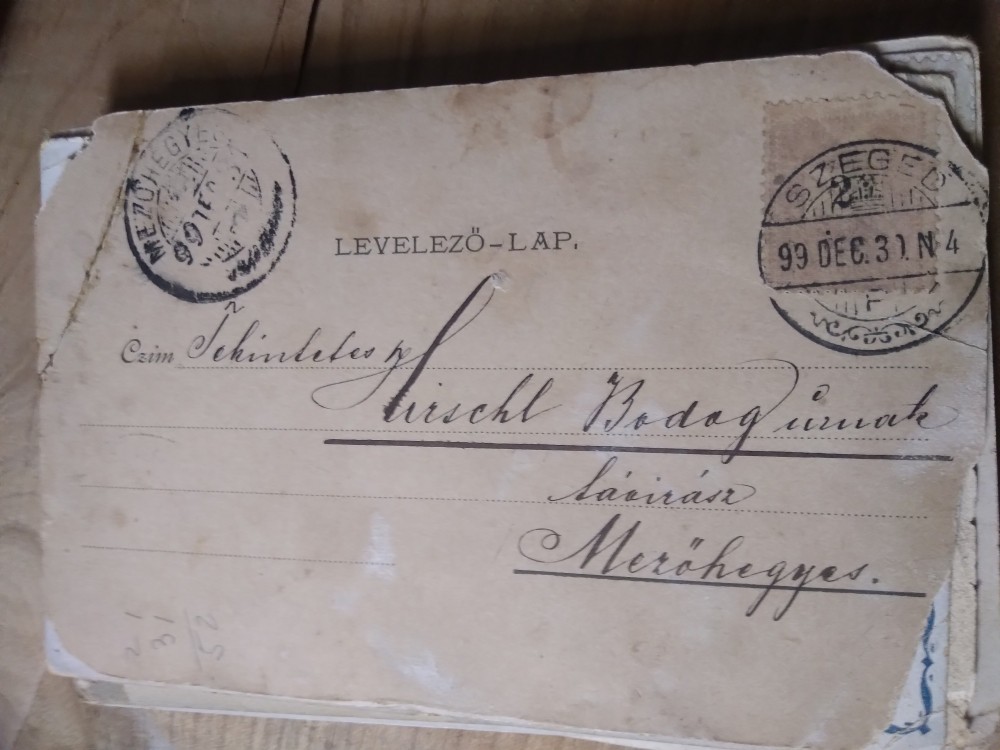 MEZŐHEGYES
99 DEC
LEVELEZŐ-LAP.
SZEGED
2
99 DEC. 31. N 4
F
Czím Tekintetes
Hirschl Bodog úrnak
távirász
Mezőhegyes.
21
31
52